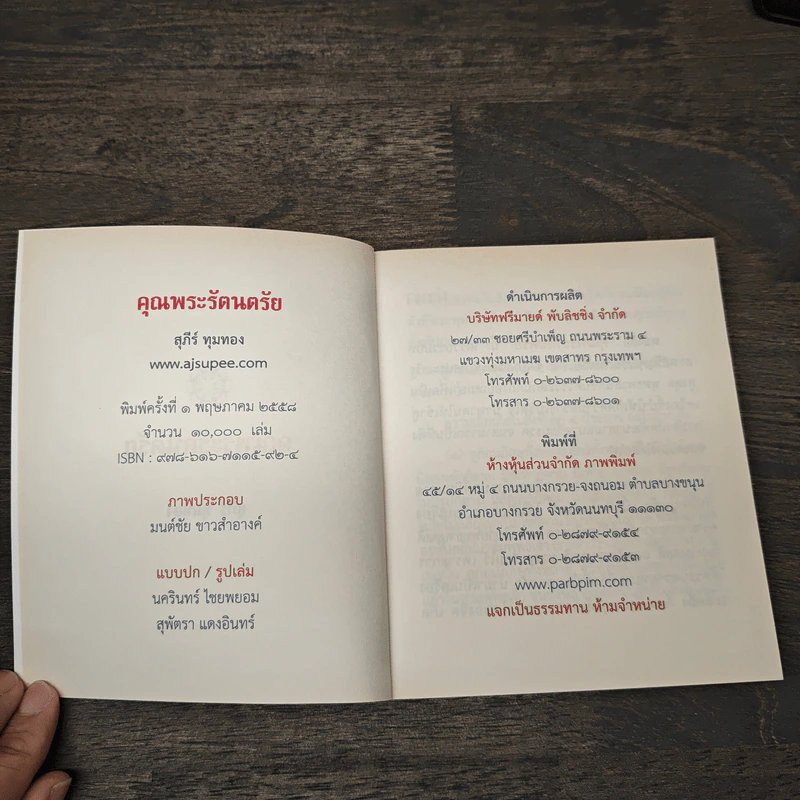 คุณพระรัตนตรัย
สุภีร์ ทุมทอง
www.ajsupee.com
พิมพ์ครั้งที่ ๑ พฤษภาคม ๒๕๕๘
จำนวน ๑๐,๐๐๐ เล่ม
ISBN : ๙๗๘-๖๑๖-๗๑๑๕-๙๒-๔
ภาพประกอบ
มนต์ชัย ขาวสำอางค์
แบบปก / รูปเล่ม
นครินทร์ ไชยพยอม
สุพัตรา แดงอินทร์
ดำเนินการผลิต
บริษัทฟรีมายด์ พับลิชชิ่ง จำกัด
๒๗/๓๓ ซอยศรีบำเพ็ญ ถนนพระราม ๔
แขวงทุ่งมหาเมฆ เขตสาทร กรุงเทพฯ
โทรศัพท์ ๐-๒๖๓๗-๘๖๐๐
โทรสาร ๐-๒๖๓๗-๘๖๐๑
พิมพ์ที่
ห้างหุ้นส่วนจำกัด ภาพพิมพ์
๔๕/๑๔ หมู่ ๔ ถนนบางกรวย-จงถนอม ตำบลบางขนุน
อำเภอบางกรวย จังหวัดนนทบุรี ๑๑๑๓๐
โทรศัพท์ ๐-๒๘๗๙-๙๑๕๔
โทรสาร ๐-๒๘๗๙-๙๑๕๓
www.parbpim.com
แจกเป็นธรรมทาน ห้ามจำหน่าย